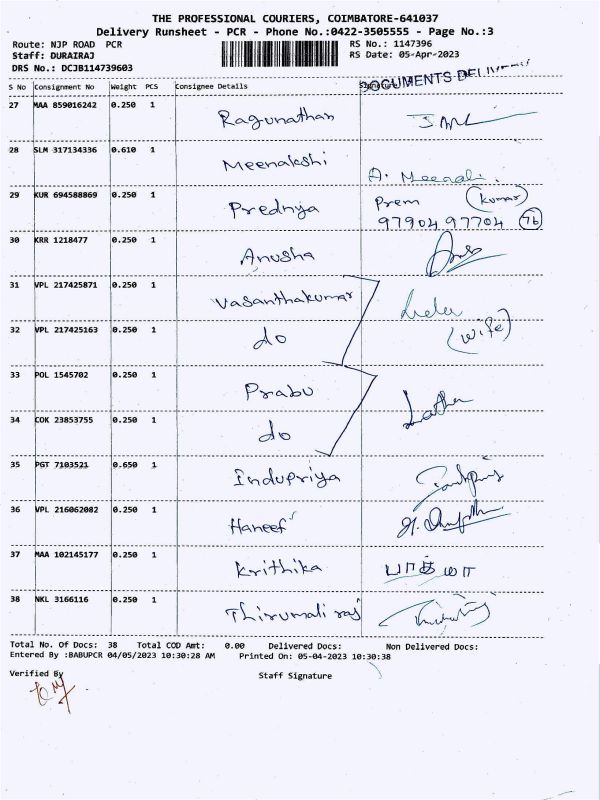 THE PROFESSIONAL COURIERS, COIMBATORE-641037
Delivery Runsheet - PCR - Phone No.:0422-3505555 - Page No.:3
Route: NJP ROAD PCR
RS No.: 1147396
Staff: DURAIRAJ
RS Date: 05-Apr-2023
DRS No.: DCJB114739603
DOCUMENTS
S No Consignment No Weight PCS Consignee Details Signature
27 MAA 859016242 0.250 1 Ragunathan
28 SLM 317134336 0.610 1 Meenakshi A. Meenakshi.
29 KUR 694588869 0.250 1 Prednya Prem (Kumar)
97904 97704 76
30 KRR 1218477 0.250 1 Anusha
31 VPL 217425871 0.250 1 Vasanthakumar
32 VPL 217425163 0.250 1 do (wife)
33 POL 1545702 0.250 1 Prabu Latha
34 COK 23853755 0.250 1 do
35 PGT 7103521 0.650 1 Indupriya
36 VPL 216062082 0.250 1 Haneef
37 MAA 102145177 0.250 1 Krithika
38 NKL 3166116 0.250 1 Thirumali raj
Total No. Of Docs: 38 Total COD Amt: 0.00 Delivered Docs: Non Delivered Docs:
Entered By :BABUPCR 04/05/2023 10:30:28 AM Printed On: 05-04-2023 10:30:38
Verified By Staff Signature